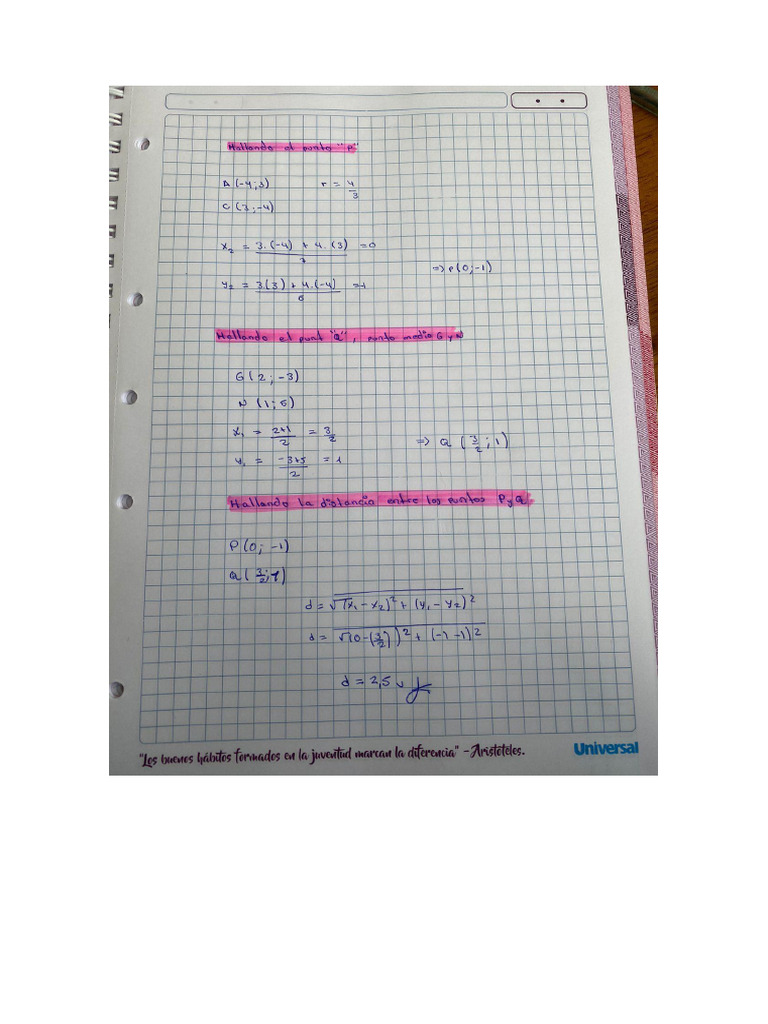 Hallando el punto "P"
A (-4; 3) r = 4/3
C (3; -4)
x₂ = 3.(-4) + 4.(3) / 7 = 0
⇒ P(0; -1)
y₂ = 3(3) + 4.(-4) / 6 = -1
Hallando el punt "Q", punto medio G y N
G (2; -3)
N (1; 5)
x₁ = 2+1 / 2 = 3/2
⇒ Q (3/2; 1)
y₁ = -3+5 / 2 = 1
Hallando la distancia entre los puntos P y Q
P (0; -1)
Q (3/2; 1)
d = √(x₁ - x₂)² + (y₁ - y₂)²
d = √(0 - (3/2))² + (-1 -1)²
d = 2,5 u
"Los buenos hábitos formados en la juventud marcan la diferencia" - Aristóteles.
Universal